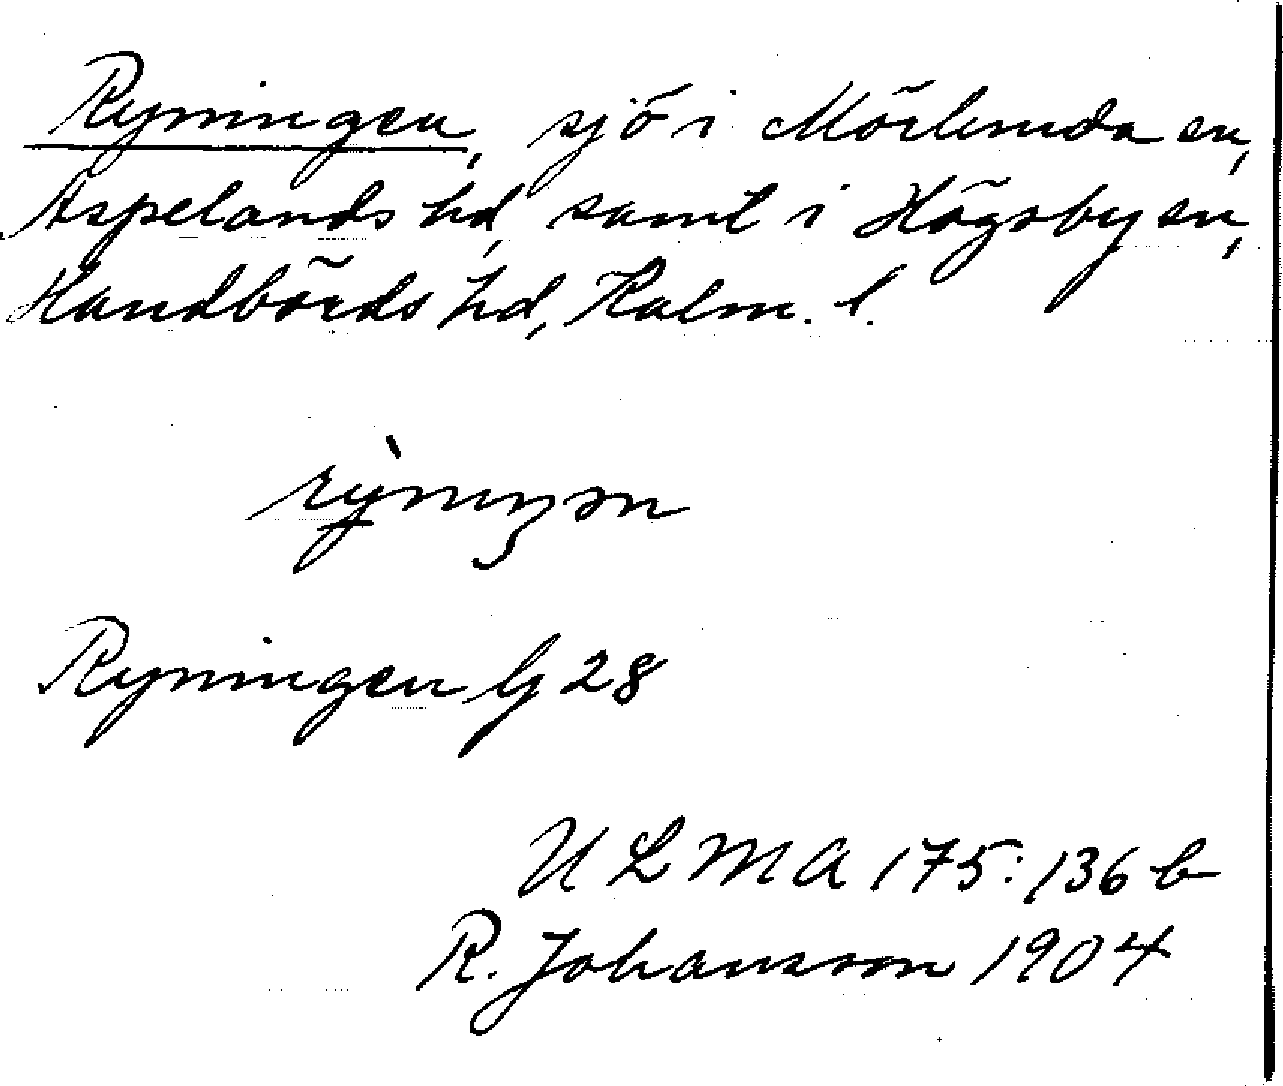 Ryningen, sjö i Mörlunda sn,
Aspelands hd, samt i Högsby sn,
Handbörds hd, Kalm. l.
rỳniŋən
Ryningen Gj 28
ULMA 175:136 b
R. Johansson 1904